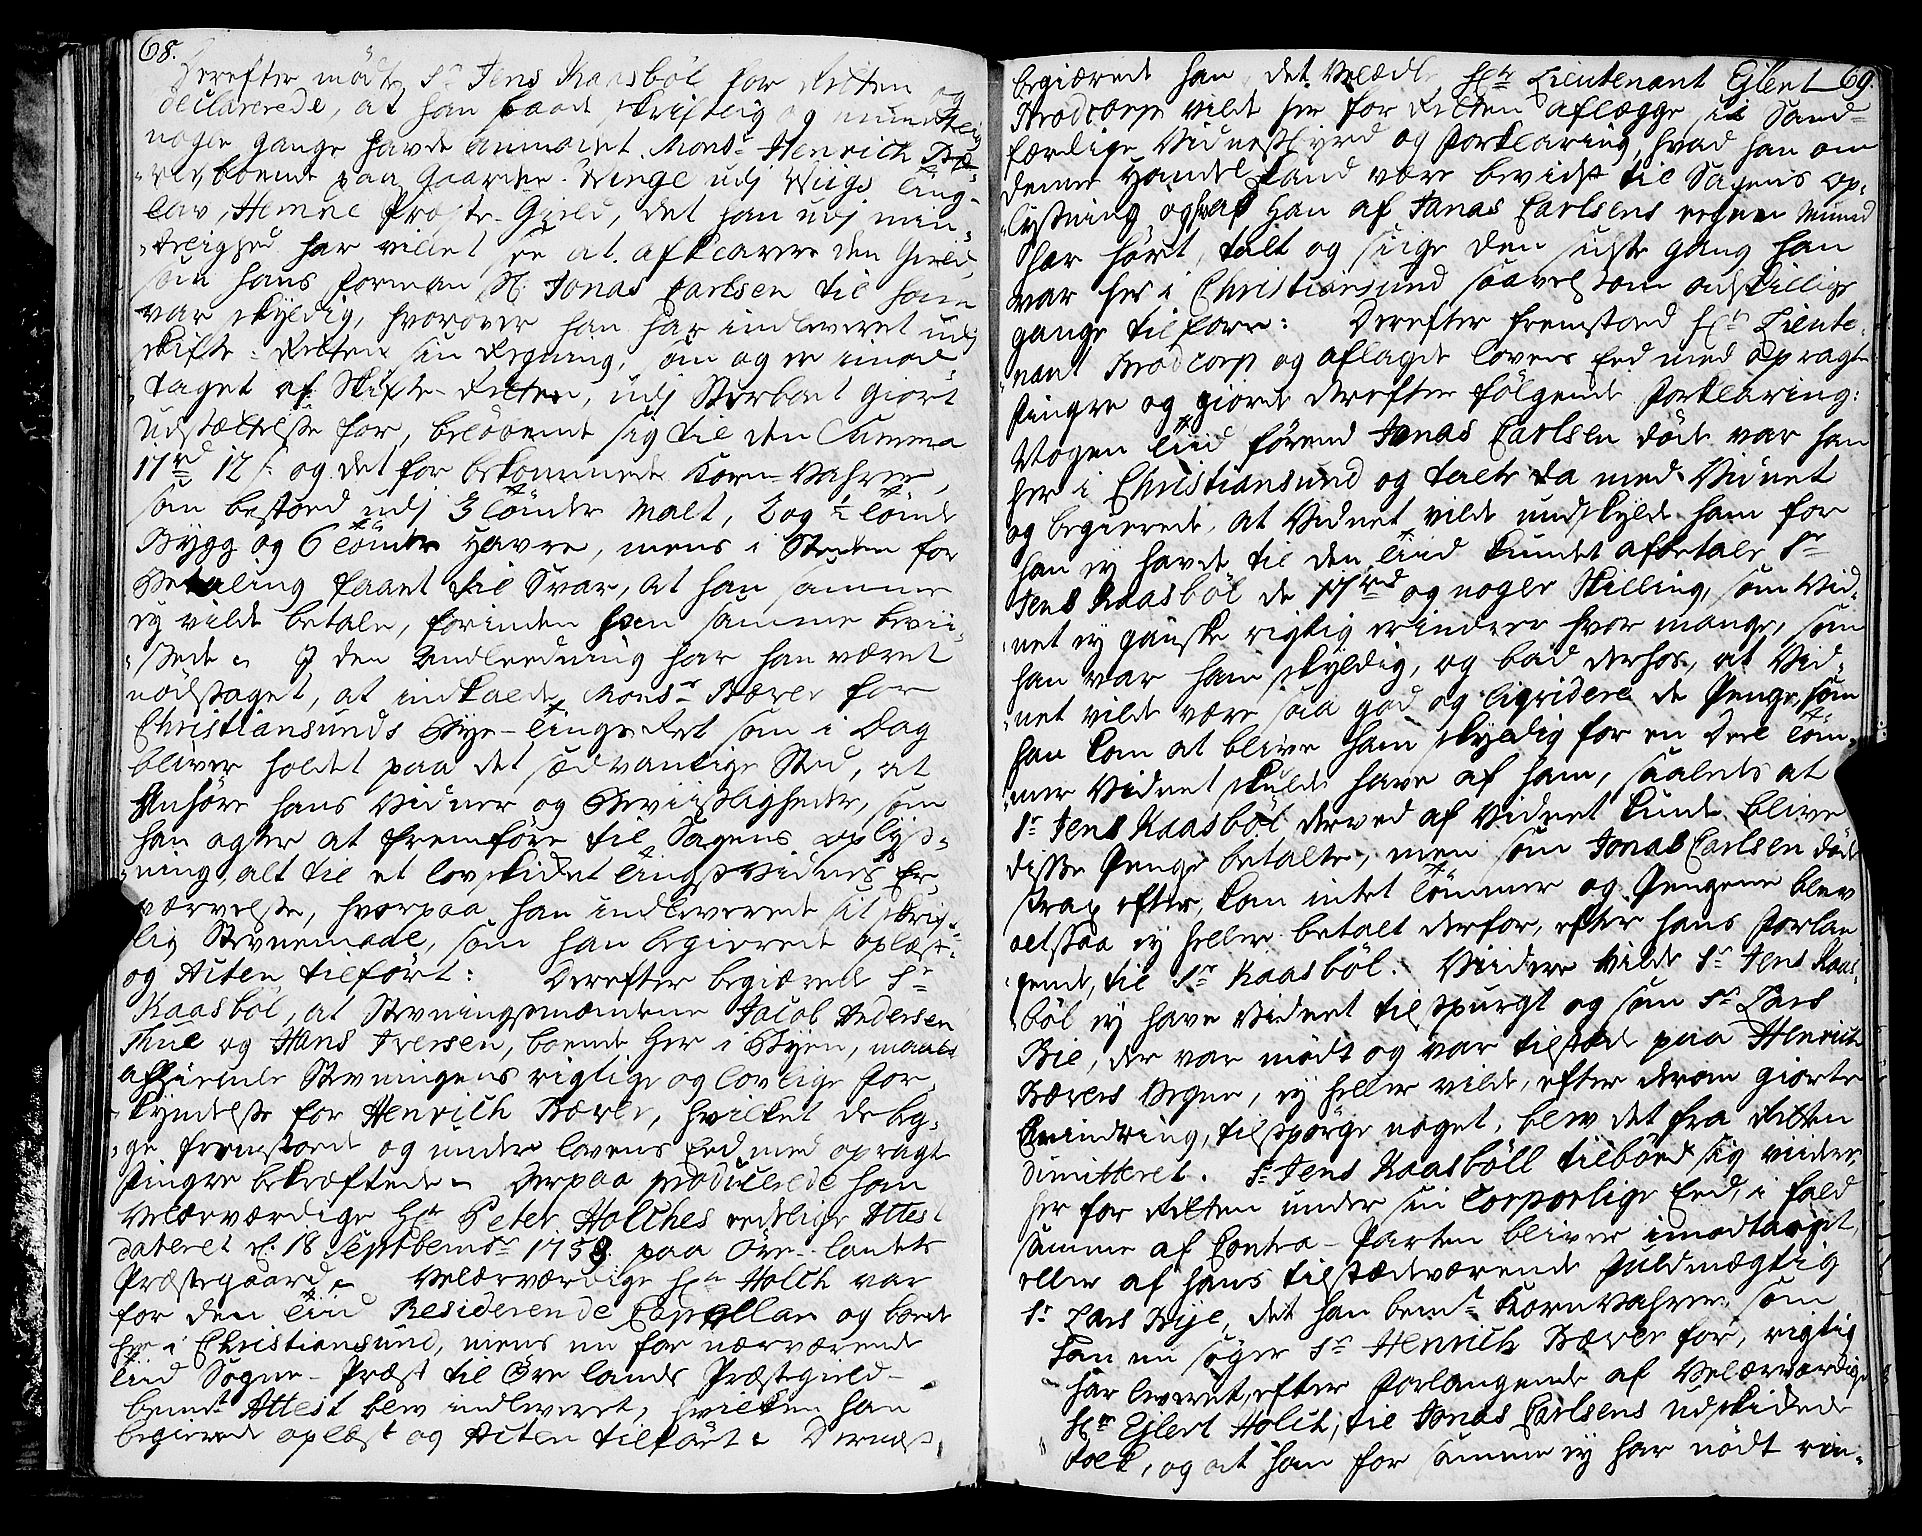 68.
Derefter mödte Sr Jens Kaasböl for Retten og
declarerede, at han baade skriftlig og mundtlig
nogle gange havde anmodet Monsr Henrich Bæ-
rer, boende paa Gaarden Winge udj Wiigs Ting-
lav, Hemne Præste-Gield, det han udj min-
delighed har villet see at afklarere den Gield,
som hans Formand Sl. Jonas Carlsen til ham
var skyldig, hvorover han har indleveret udj
Skifte-Retten sin Regning, som og er imod-
taget af Skifte-Retten, udj Sterboet giort
Udsættelse for, beløbende sig til den Summa
17rd 12s: og det for bekommende Korn-Vahrer,
som bestoed udj 3 Tönder Malt, 2 og ½ Tönde
Bygg og 6 Tönder Havre, mens i Steden for
Betaling faaet til Svar, at han samme
ey vilde betale, forinden han samme bevii-
ssede. I den Andleedning har han været
nödsaget, at indkalde Monsr Bærer for
Christiansunds Bye-Tings Ret som i Dag
bliver holdet paa det sædvanlige Sted, at
Anhöre hans Vidner og Beviisligheder, som
han agter at fremföre til Sagens oplys-
ning, alt til et lovskikket Tings-Vidnes Er-
værvelse, hvorpaa han indleverede sit skrivt-
lig Stevnemaal, som han begierede oplæst
og Acten tilfört: Derefter begiærede Sr
Kaasböl, at Stevningsmændene Jacob Andersen
Thue og Hans Iversen, boende her i Byen, maatte
afhiemle Stevningens rigtige og lovlige For-
kyndelse for Henrich Bærer, hvilket de beg-
ge fremstoed og under Lovens Eed med opragte
Fingre bekræftede. Derpaa producerede han
Velærværdige Hr Peter Holches eedelige Attest
dateret d. 18 Septbembr 1758 paa Öre-landets
Præstegaard. Velærværdige Hr Holch var
for den Tiid Residerende Capellan og boede
her i Christiansund, mens nu for nærværende
Tiid Sogne-Præst til Öre lands Præstegield
bemte Attest blev indleveret, hvilken han
begierede oplæst og Acten tilfört. Dernæst
69.
begiærede han, det Velædle Hr Lieutenant Eylert
Brodcorp vilde her for Retten aflægge sit Sand-
færdige Vidnesbyrd og Forklaring, hvad han om
denne Handel kand være bevidst til Sagens op-
lysning og hvad Han af Jonas Carlsens eegen Mund
har hört, talt og siige den sidste gang han
var her i Christiansund saavelsom adskillige
gange tilforn: Derefter fremstoed Hr Lieute-
nant Brodcorp og aflagde Lovens Eed med opragte
Fingre og giorde derefter fölgende Forklaring:
Nogen Tiid förend Jonas Carlsen döde var han
her i Christiansund og talte da med Vidnet
og begierede, at Vidnet vilde undskylde ham for
han ey havde til den Tiid kundet afbetale Sr
Jens Kaasböl de 17rd og nogle Skilling, som Vid-
net ey ganske rigtig erindrer hvor mange, som
han var ham skyldig, og bad derhos, at Vid-
net vilde være saa god og liqvidere de Penge, som
han kom at blive ham skyldig for en Deel Töm-
mer Vidnet skulde have af ham, saaledes at
Sr Jens Kaasböl derved af Vidnet kunde blive
disse Penge betalte, men som Jonas Carlsen döde
strax efter, kom intet Tömmer og Pengene blev
altsaa ey heller betalt derfor, efter hans Forlan-
gende, til Sr Kaasböl. Viidere vilde Sr Jens Kaas-
böl ey have Vidnet tilspurgt og som Sr Lars
Bie, der var mödt og var tilstæde paa Henrich
Bærers Vegne, ey heller vilde, efter derom giorte
Erindring, tilspörge noget, blev det fra Retten
dimitteret. Sr Jens Kaasböll tilböed sig viidere
her for Retten under sin Corporlige Eed, i fald
samme af Contra-Parten bliver imodtaget,
eller af hans tilstædeværende Fuldmægtig
Sr Lars Bye, det han bemte KornVahrer, som
han nu söger Sr Henrich Bærer for, rigtig
har leveret, efter Forlangende af Velærværdige
Hr Eylert Holch, til Jonas Carlsens udskikkede
Folk, og at han for samme ey har nödt een-